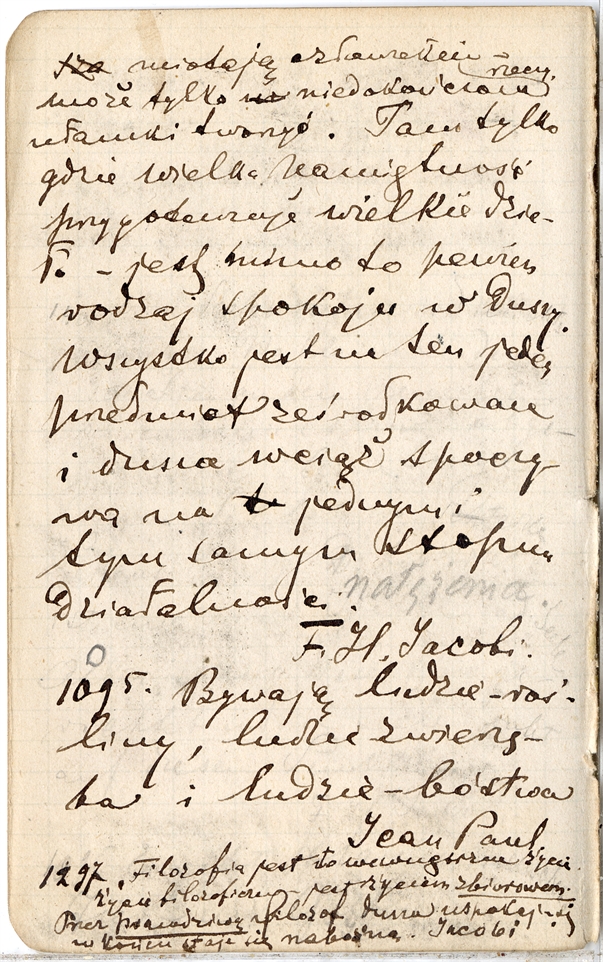 miotają człowiekiem –
może tylko niedokończone rzeczy,
ułamki tworzyć. Tam tylko
gdzie wielka namiętność
przygotowuje wielkie dzie-
ł. – jest mimo to pewien
rodzaj spokoju w duszy.
Wszystko jest na ten jeden
przedmiot ześrodkowane
i dusza wciąż spoczy-
wa na jednym i
tym samym stopniu
działalności.
natężenia
F. H. Jacobi.
1095. Bywają ludzie-roś-
liny, ludzie zwierzę-
ta i ludzie-bóstwa
Jean Paul
1297. Filozofia jest to wewnętrzne życie.
Życie filozoficzne – jest życiem zbiorowem.
Przez prawdziwą filozof. dusza uspokaja się
w końcu staje się nabożną. Jacobi